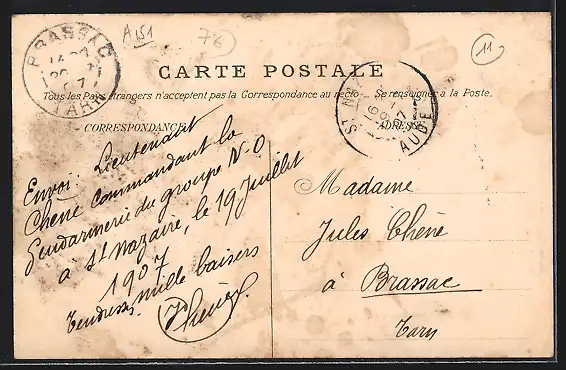 BRASSAC
TARN
A151
76
11
CARTE POSTALE
Tous les Pays étrangers n'acceptent pas la Correspondance au recto. Se renseigner à la Poste.
CORRESPONDANCE
ADRESSE
AUDE
Envoi: Lieutenant
Chêne commandant la
Gendarmerie du groupe N.O
à St Nazaire, le 19 Juillet
1907
Tendresses, mille baisers
JChêne
Madame
Jules Chêne
à Brassac
Tarn